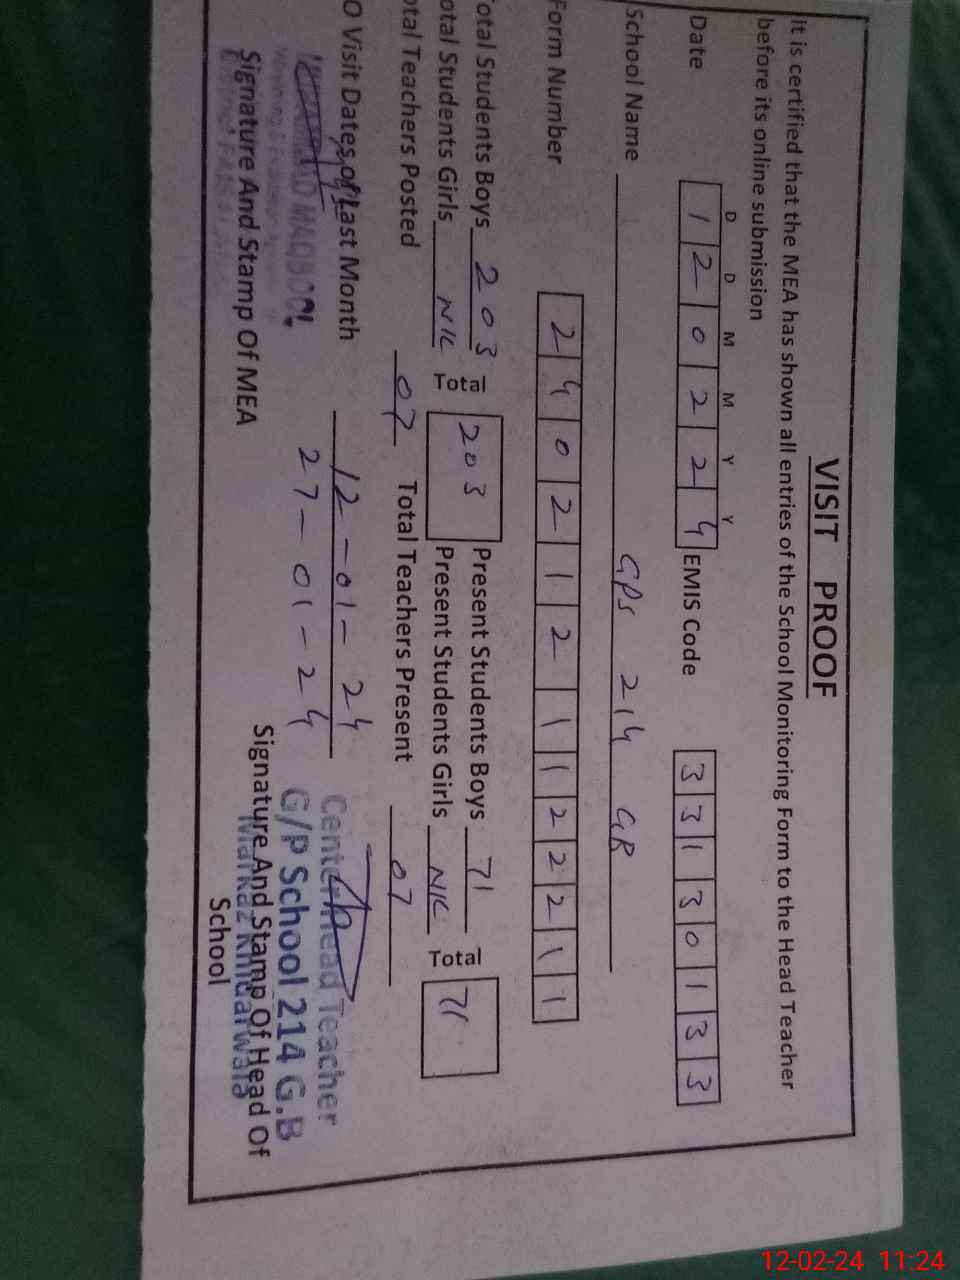 VISIT PROOF
It is certified that the MEA has shown all entries of the School Monitoring Form to the Head Teacher
before its online submission
D D M M Y Y
Date 1 2 0 2 2 4 EMIS Code 3 3 1 3 0 1 3 3
School Name GPS 214 GB
Form Number 2 4 0 2 1 2 1 1 2 2 2 1 1
otal Students Boys 203 Total 203 Present Students Boys 71 Total 71
otal Students Girls NIL Present Students Girls NIL
otal Teachers Posted 07 Total Teachers Present 07
O Visit Dates of Last Month 12-01-24
27-01-24
MAQBOOL
Monitoring &
Signature And Stamp Of MEA
Center Head Teacher
G/P School 214 G.B
Markaz Khidarwala
Signature And Stamp Of Head Of
School
12-02-24 11:24